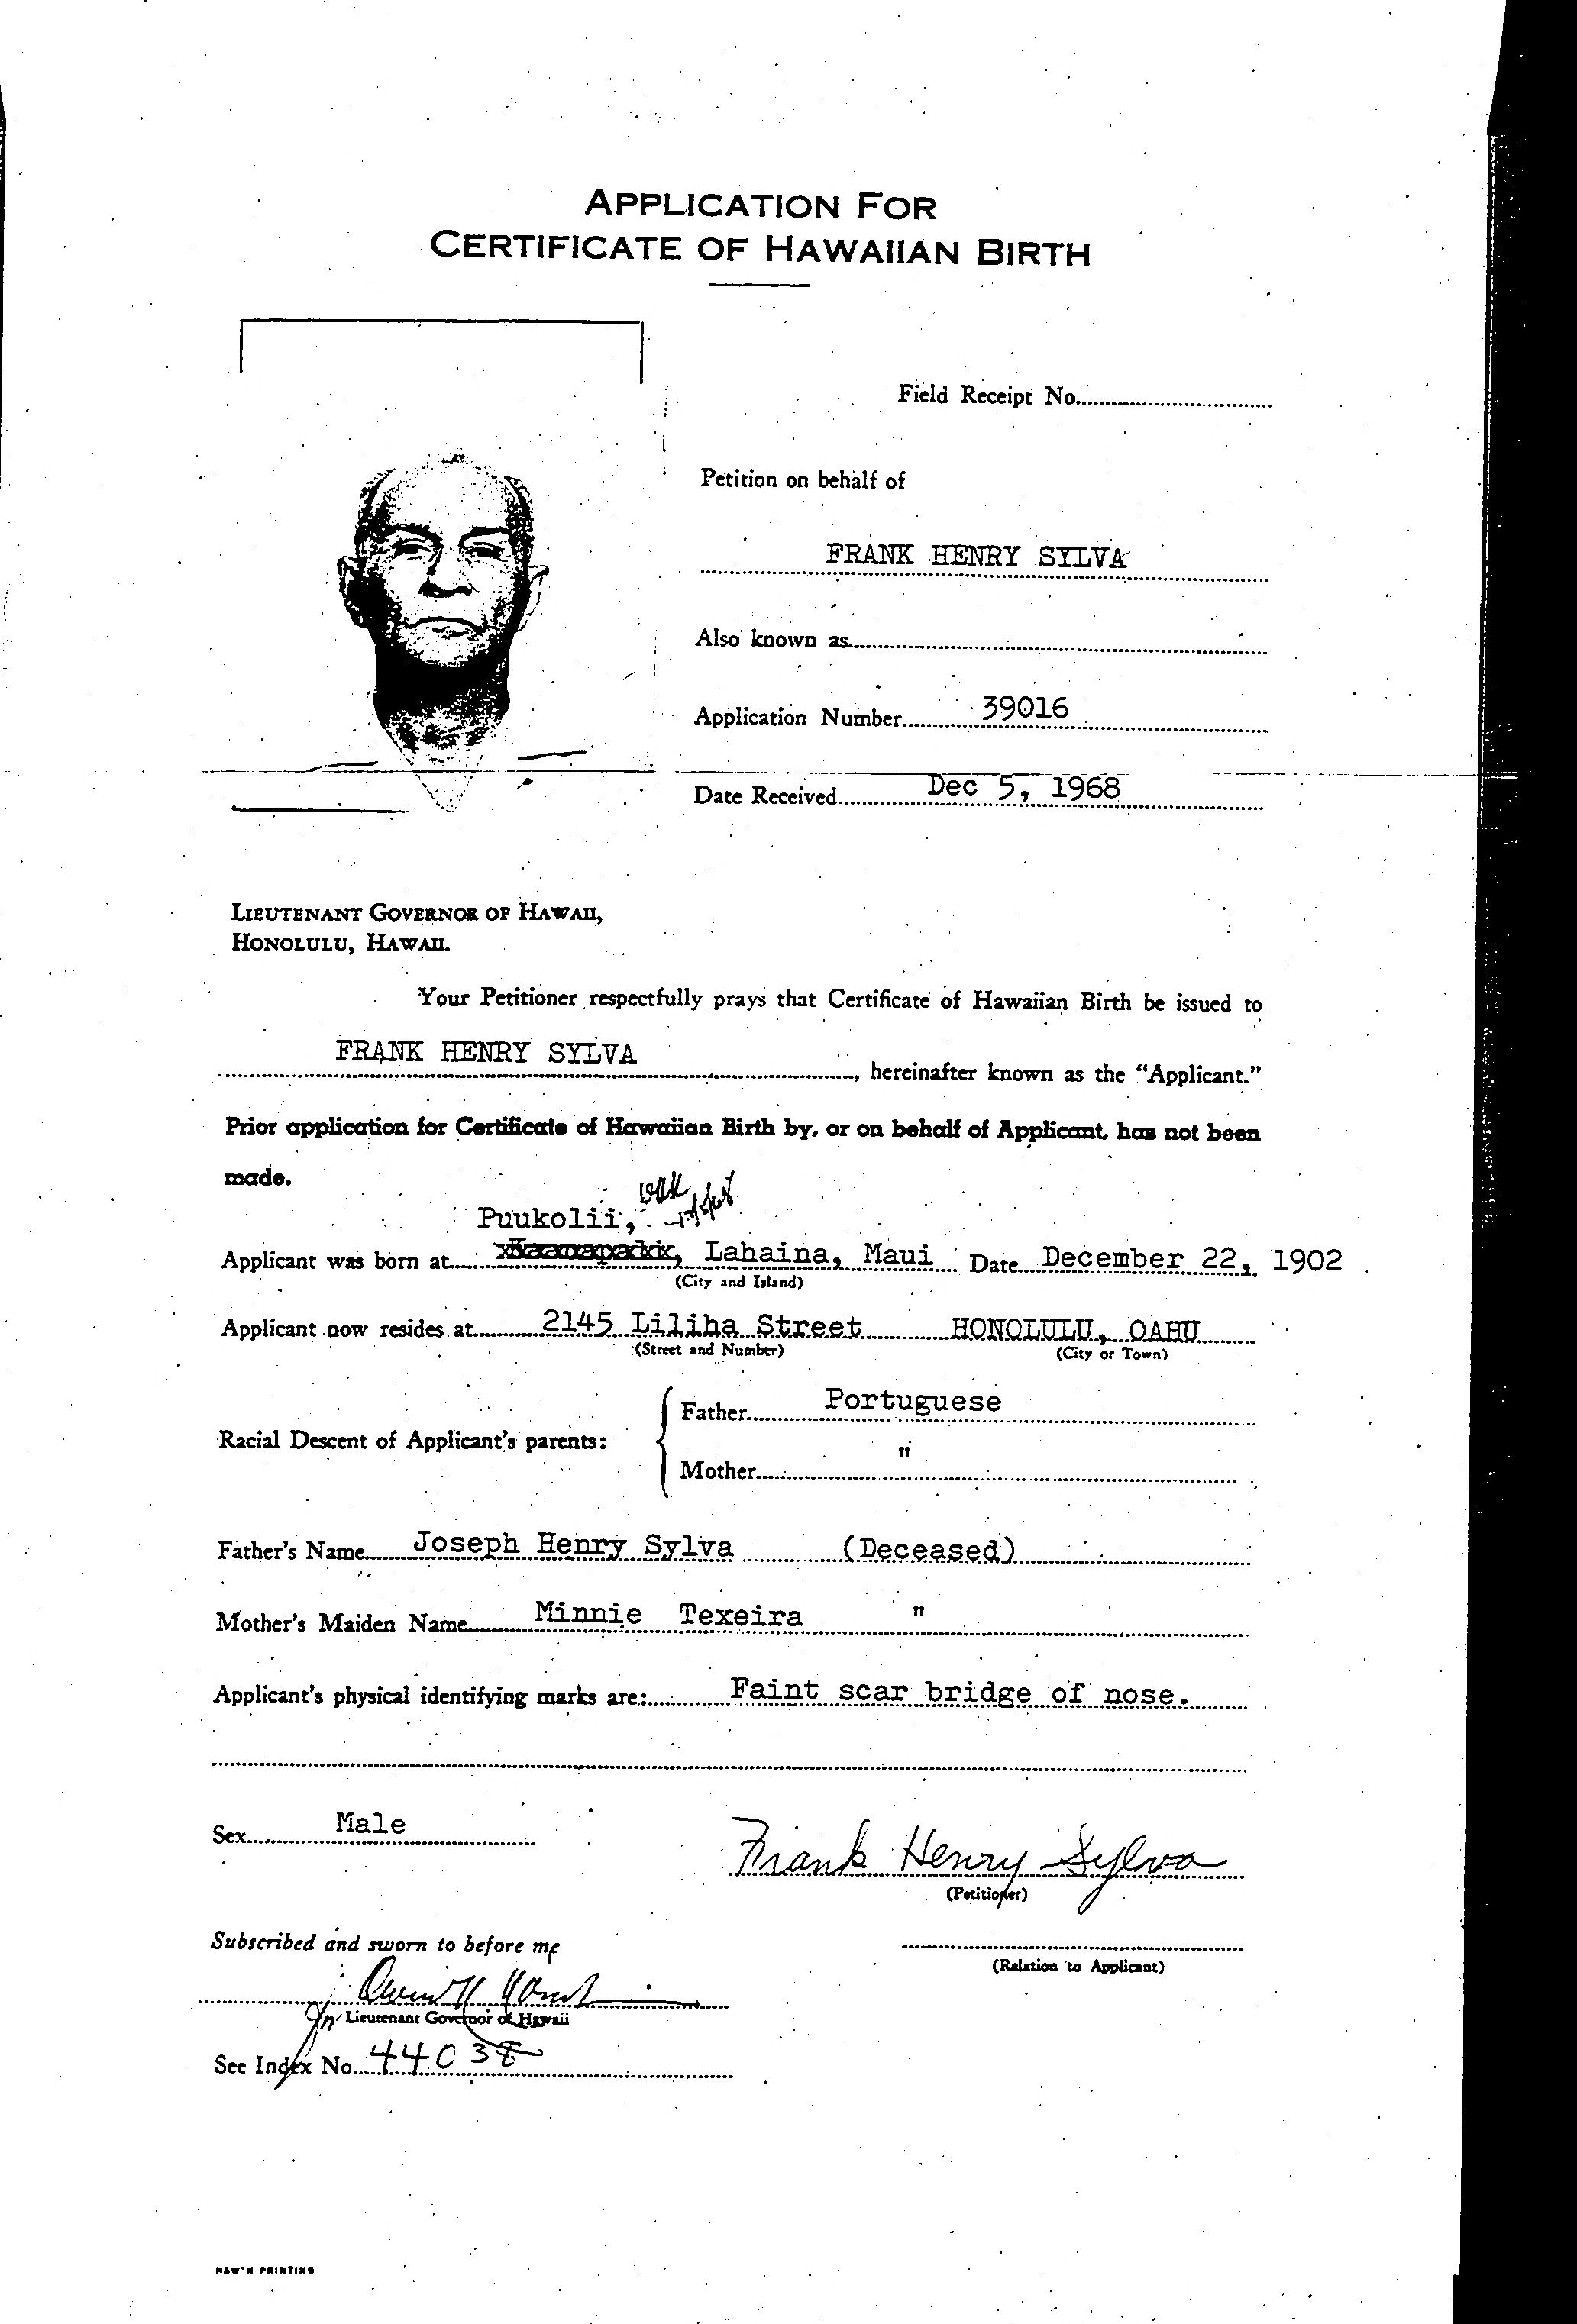 APPLICATION FOR
CERTIFICATE OF HAWAIIAN BIRTH
Field Receipt No.
Petition on behalf of
FRANK HENRY SYLVA
Also known as
Application Number 39016
Date Received Dec 5, 1968
LIEUTENANT GOVERNOR OF HAWAII,
HONOLULU, HAWAII.
Your Petitioner respectfully prays that Certificate of Hawaiian Birth be issued to
FRANK HENRY SYLVA, hereinafter known as the "Applicant."
Prior application for Certificate of Hawaiian Birth by, or on behalf of Applicant, has not been
made.
Puukolii,
Applicant was born at Lahaina, Maui Date December 22, 1902
(City and Island)
Applicant now resides at 2145 Liliha Street HONOLULU, OAHU
(Street and Number) (City or Town)
Father Portuguese
Racial Descent of Applicant's parents:
Mother "
Father's Name Joseph Henry Sylva (Deceased)
Mother's Maiden Name Minnie Texeira "
Applicant's physical identifying marks are: Faint scar bridge of nose.
Sex Male
Frank Henry Sylva
(Petitioner)
Subscribed and sworn to before me
(Relation to Applicant)
Lieutenant Governor of Hawaii
See Index No. 44038
HAW'N PRINTING